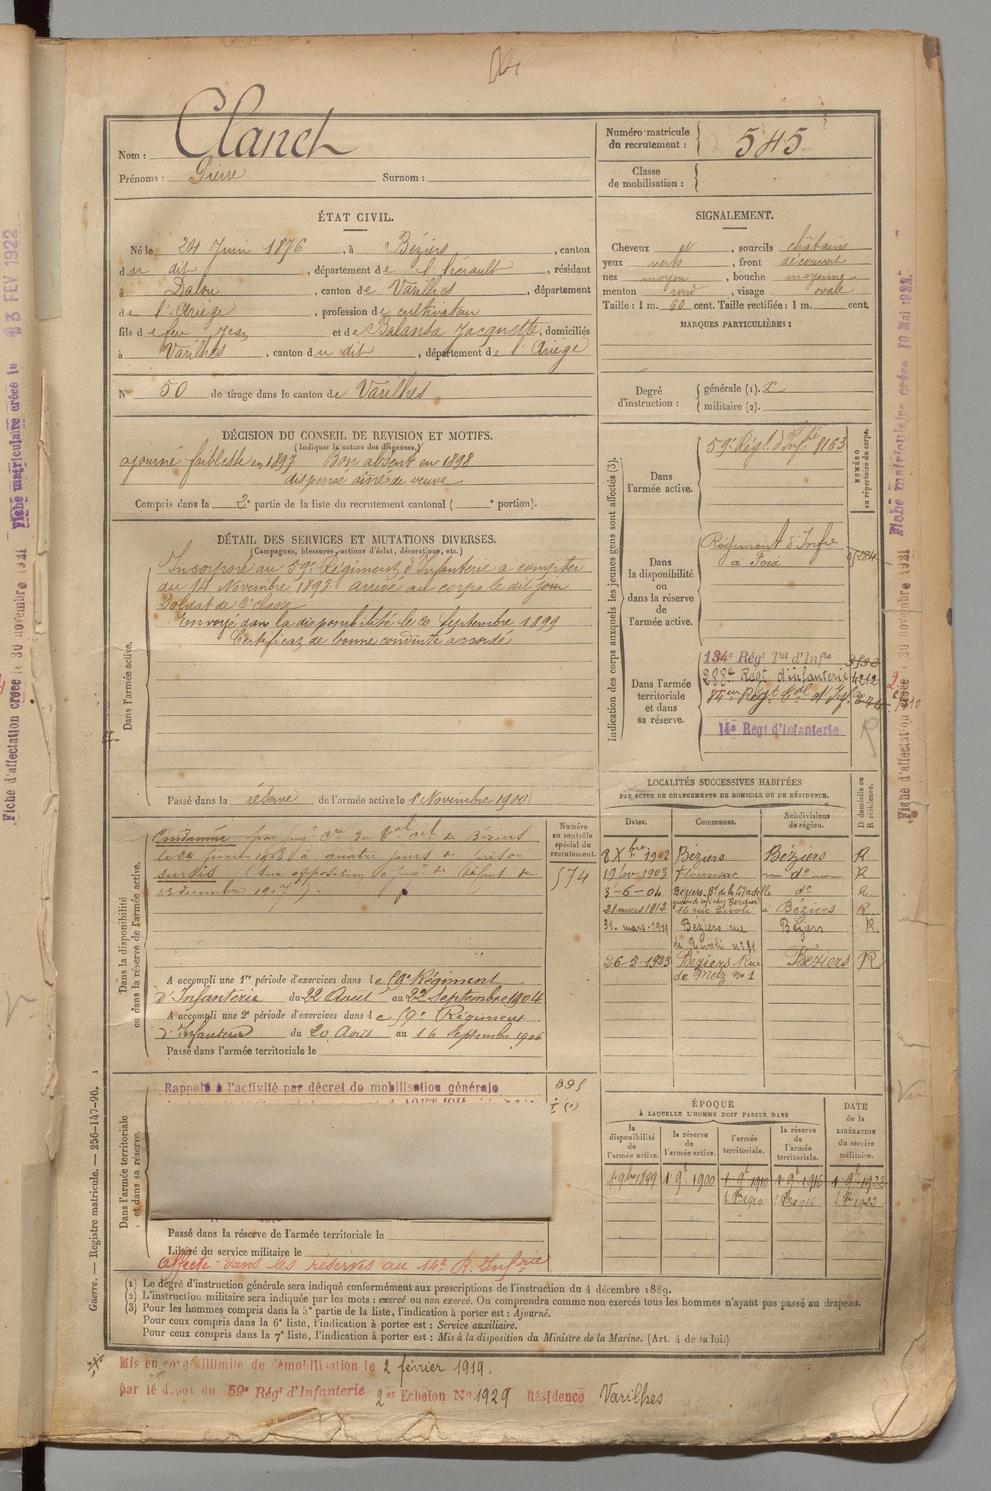 Nom : Clanet
Prénoms : Pierre Surnom :
Numéro matricule du recrutement : 545
Classe de mobilisation :
ÉTAT CIVIL.
Né le 24 Juin 1876, à Béziers, canton
du dit, département de l'Hérault, résidant
à Dalou, canton de Varilhes, département
de l'Ariège, profession de cultivateur
fils de feu Jean et de Balansa Jacquette, domiciliés
à Varilhes, canton du dit, département de l'Ariège
N° 50 de tirage dans le canton de Varilhes
SIGNALEMENT.
Cheveux et, sourcils châtains
yeux verts, front découvert
nez moyen, bouche moyenne
menton rond, visage ovale
Taille : 1 m. 60 cent. Taille rectifiée : 1 m. cent.
MARQUES PARTICULIÈRES :
Degré d'instruction : générale (1).
militaire (2).
DÉCISION DU CONSEIL DE REVISION ET MOTIFS.
(Indiquer la nature des dispenses.)
ajourné faiblesse en 1897 Bon absent en 1898
dispensé aîné de veuve
Compris dans la 2e partie de la liste du recrutement cantonal ( e portion).
DÉTAIL DES SERVICES ET MUTATIONS DIVERSES.
(Campagnes, blessures, actions d'éclat, décorations, etc.)
Dans l'armée active.
Incorporé au 59e Régiment d'Infanterie à compter
du 14 Novembre 1898 arrivé au corps le dit jour
Soldat de 2e classe
Envoyé dans la disponibilité le Septembre 1899
Certificat de bonne conduite accordé
Passé dans la réserve de l'armée active le 1 Novembre 1900
Indication des corps auxquels les jeunes gens sont affectés (3).
NUMÉRO au répertoire du corps.
Dans l'armée active. 59e Régt d'Inf. 8163
Dans la disponibilité ou dans la réserve de l'armée active. Régiment d'Infie à Foix
Dans l'armée territoriale et dans sa réserve. 134e Régt Tal d'Infie
288e Régt d'infanterie 4212
14e Régt d'Infanterie
R
Dans la disponibilité ou dans la réserve de l'armée active.
Numéro au contrôle spécial du recrutement.
574
Condamné par jugt du de Béziers
le 24 février 1908 à quatre jours de prison
sursis (sur opposition à jugt de défaut du
23 décembre 1907).
A accompli une 1re période d'exercices dans le 59e Régiment
d'Infanterie du 22 Août au 22 Septembre 1904
A accompli une 2e période d'exercices dans le 59e Régiment
d'Infanterie du 20 Août au 16 Septembre 1906
Passé dans l'armée territoriale le
LOCALITÉS SUCCESSIVES HABITÉES
PAR SUITE DE CHANGEMENTS DE DOMICILE OU DE RÉSIDENCE.
Dates. Communes. Subdivisions de région. D domicile ou R résidence.
8 Xbre 1902 Béziers Béziers R
19 fév. 1903 Florensac do R
3-6-04 do R
21 mars 1912 16 rue Rivoli à Béziers R.
31. mars. 1919 Béziers rue de Rivoli n° 31 Béziers R.
26-3-1923 Béziers Rue de Metz n° 1 Béziers R
Dans l'armée territoriale et dans sa réserve.
Rappelé à l'activité par décret de mobilisation générale
Passé dans la réserve de l'armée territoriale le
Libéré du service militaire le
affecté dans les réserves au 14e R. Infrie
ÉPOQUE
À LAQUELLE L'HOMME DOIT PASSER DANS
la disponibilité de l'armée active. la réserve de l'armée active. l'armée territoriale. la réserve de l'armée territoriale.
DATE de la LIBÉRATION du service militaire.
1 9bre 1899 1 9e 1900 1 9e 1910 1 9e 1916 1 9e 1922
(1) Le degré d'instruction générale sera indiqué conformément aux prescriptions de l'instruction du 4 décembre 1889.
(2) L'instruction militaire sera indiquée par les mots : exercé ou non exercé. On comprendra comme non exercés tous les hommes n'ayant pas passé au drapeau.
(3) Pour les hommes compris dans la 5e partie de la liste, l'indication à porter est : Ajourné.
Pour ceux compris dans la 6e liste, l'indication à porter est : Service auxiliaire.
Pour ceux compris dans la 7e liste, l'indication à porter est : Mis à la disposition du Ministre de la Marine. (Art. 4 de la loi.)
Mis en congé illimité de démobilisation le 2 février 1919.
par le dépôt du 59e Régt d'Infanterie 2e Echelon No 1929 Résidence Varilhes
Guerre. — Registre matricule. — 256-147-96.
Fiche d'affectation créée le 30 novembre 1921 Fiche matriculaire créée le 13 FEV 1922
Fiche d'affectation créée 30 novembre 1921 Fiche matriculaire créée 10 Mai 1922